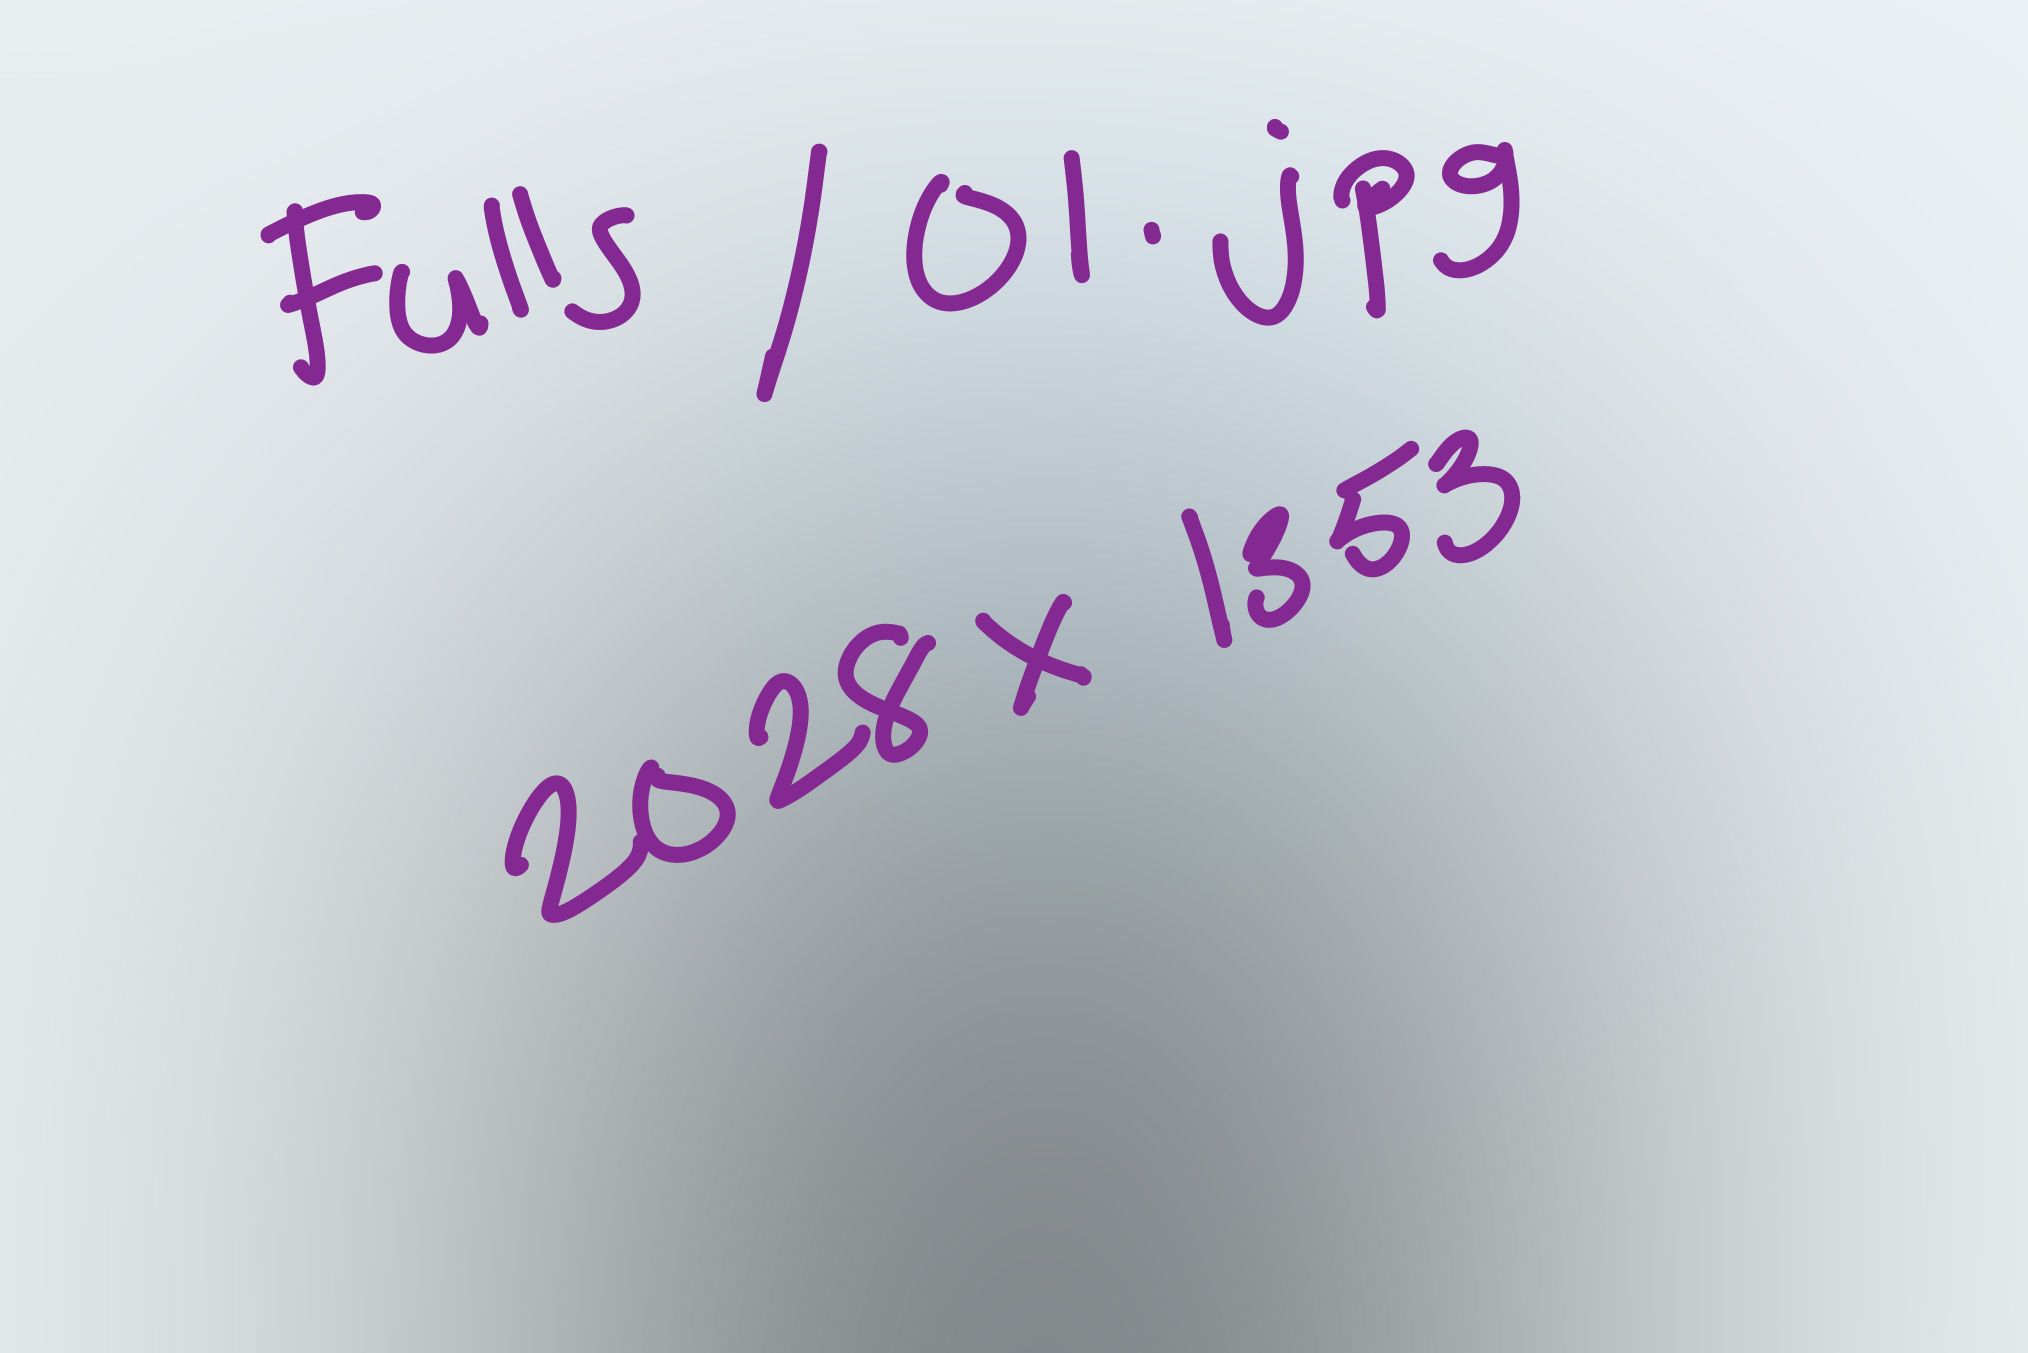 Fulls / 01.jpg
2028 x 1353